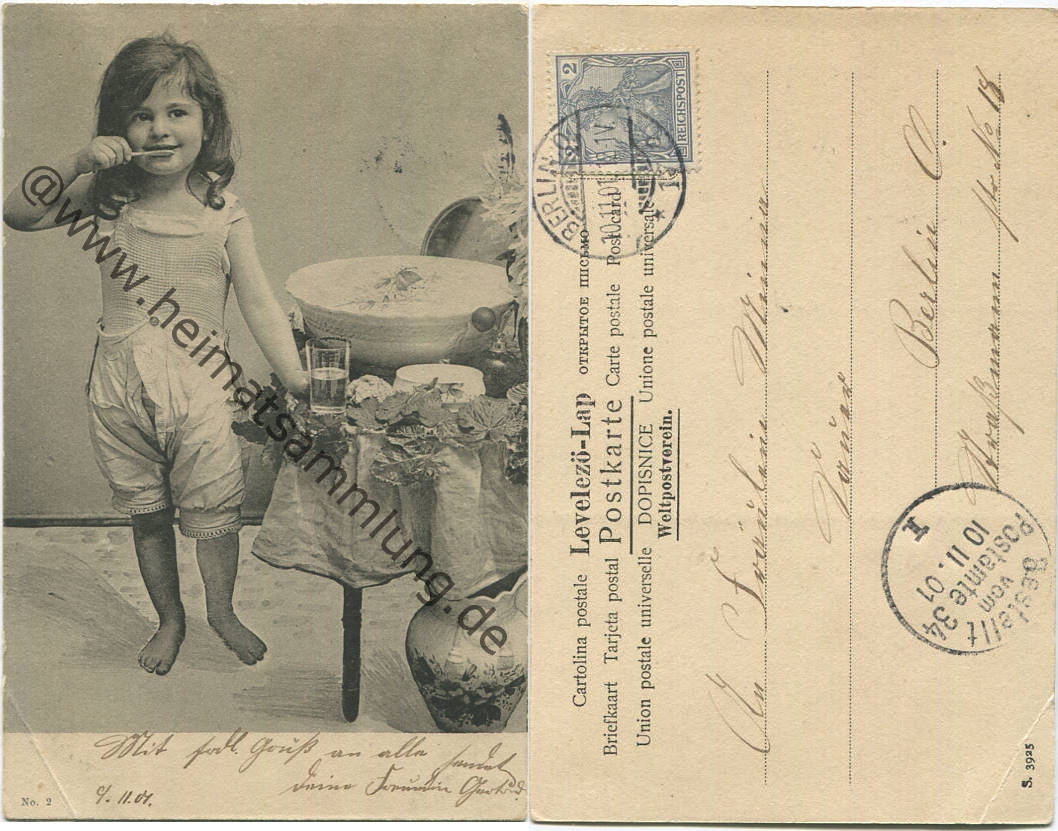 @www.heimatsammlung.de
Mit frdl. Gruß an alle sendet
deine Freundin
No. 2
11.01.
2
2
REICHSPOST
BERLIN
10.11.01
Cartolina postale Levelezö-Lap ОТКРЫТОЕ ПИСЬМО
Briefkaart Tarjeta postal Postkarte Carte postale Postcard
Union postale universelle DOPISNICE Unione postale universale
Weltpostverein.
An Fräulein
Berlin O.
Straßmann str No 18
Bestellt
vom
Postamte 34
10 11. 01
I
S. 3925